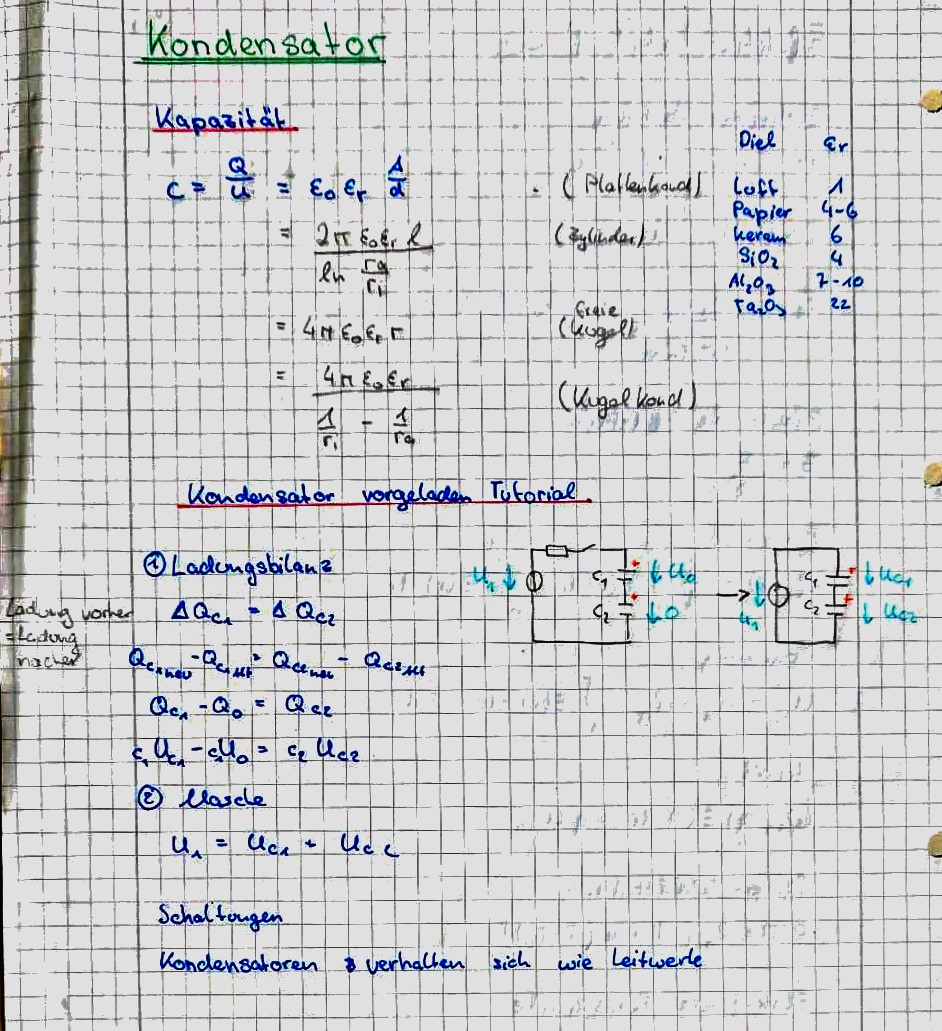 Kondensator
Kapazität
C = Q/U = ε₀ εᵣ A/d (Plattenkond)
= 2π ε₀εᵣ l / ln ra/ri (Zylinder)
= 4π ε₀ εᵣ r (freie Kugel)
= 4π ε₀ εᵣ / 1/ri - 1/ra (Kugelkond)
Diel εr
Luft 1
Papier 4-6
Keram 6
SiO₂ 4
Al₂O₃ 7-10
Ta₂O₅ 22
Kondensator vorgeladen Tutorial.
① Ladungsbilanz
ΔQc₁ = ΔQc₂
Ladung vorher
= Ladung
nacher
Qc₁neu - Qc₁alt = Qc₂neu - Qc₂alt
Qc₁ - Q₀ = Qc₂
c₁Uc₁ - c₁U₀ = c₂Uc₂
② Masche
U₁ = Uc₁ + Uc₂
U₁ C₁ U₀ C₂ 0
U₁ C₁ Uc₁ C₂ Uc₂
Schaltungen
Kondensatoren verhalten sich wie Leitwerte